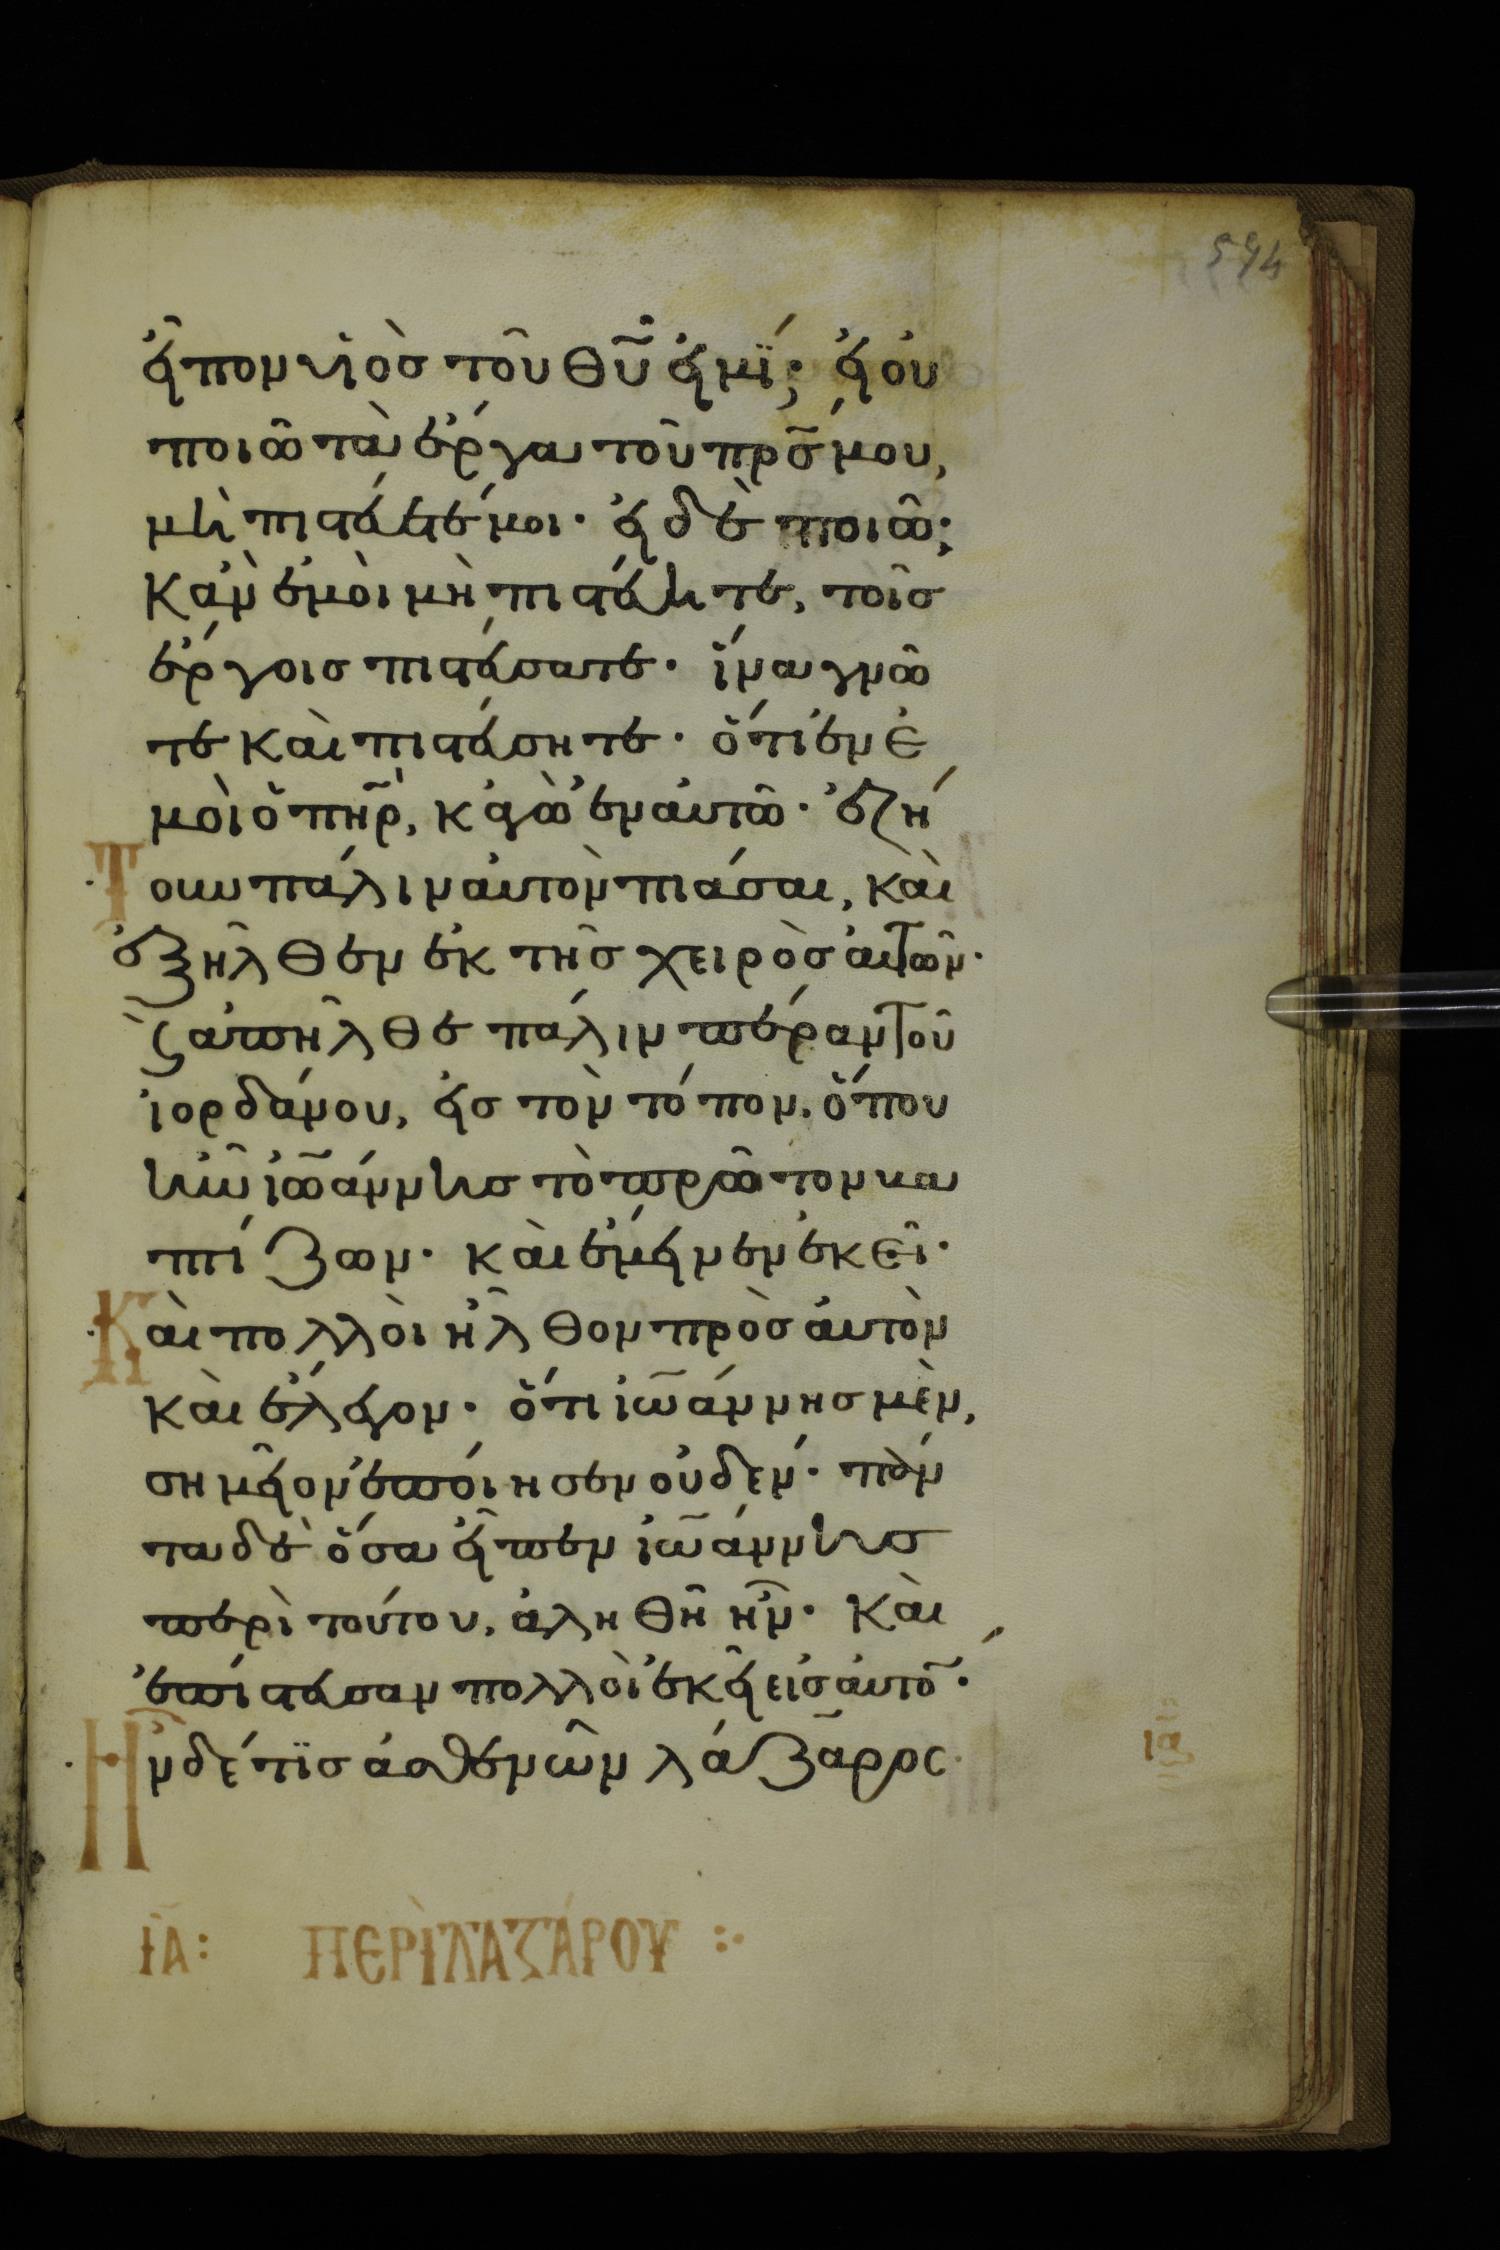 594
εἶπον υἱὸσ τοῦ θῦ εἰμΐ; εἰ οὐ
ποιῶ τὰ ἔργα τοῦ πρ̅σ μου,
μὴ πιστεύετέ μοι· εἰ δὲ ποιῶ;
κἀν ἐμοὶ μὴ πιστεύητε, τοῖσ
ἔργοισ πιστεύσατε· ἵνα γνῶ
τε καὶ πιστεύσητε· ὅτι ἐν ἐ
μοὶ ὁ πη̅ρ, κἀγὼ ἐν αὐτῶ· ἐζή
Τουν πάλιν αὐτὸν πιάσαι, καὶ
ἐξῆλθεν ἐκ τῆσ χειρὸσ αὐτῶν·
ϗ ἀπῆλθε πάλιν πέραν τοῦ
ἰορδάνου, εἰσ τὸν τόπον, ὅπου
ἦν ἰω̅άννησ τὸ πρῶτον βα
πτίζων· καὶ ἔμεινεν ἐκεῖ·
Καὶ πολλοὶ ἦλθον πρὸσ αὐτὸν
καὶ ἔλεγον· ὅτι ἰω̅άννησ μὲν,
σημεῖον ἐποίησεν οὐδέν· πάν
τα δὲ ὅσα εἶπεν ἰω̅άννησ
περὶ τούτου, ἀληθῆ ἦν· καὶ
ἐπίστευσαν πολλοὶ ἐκεῖ εἰσ αὐτο̅·
Ἦν δέ τϊσ ἀσθενῶν λάζαρος·
ια̅
ΙΑ̅: ΠΕΡῚ ΛΑΖΆΡΟΥ :·